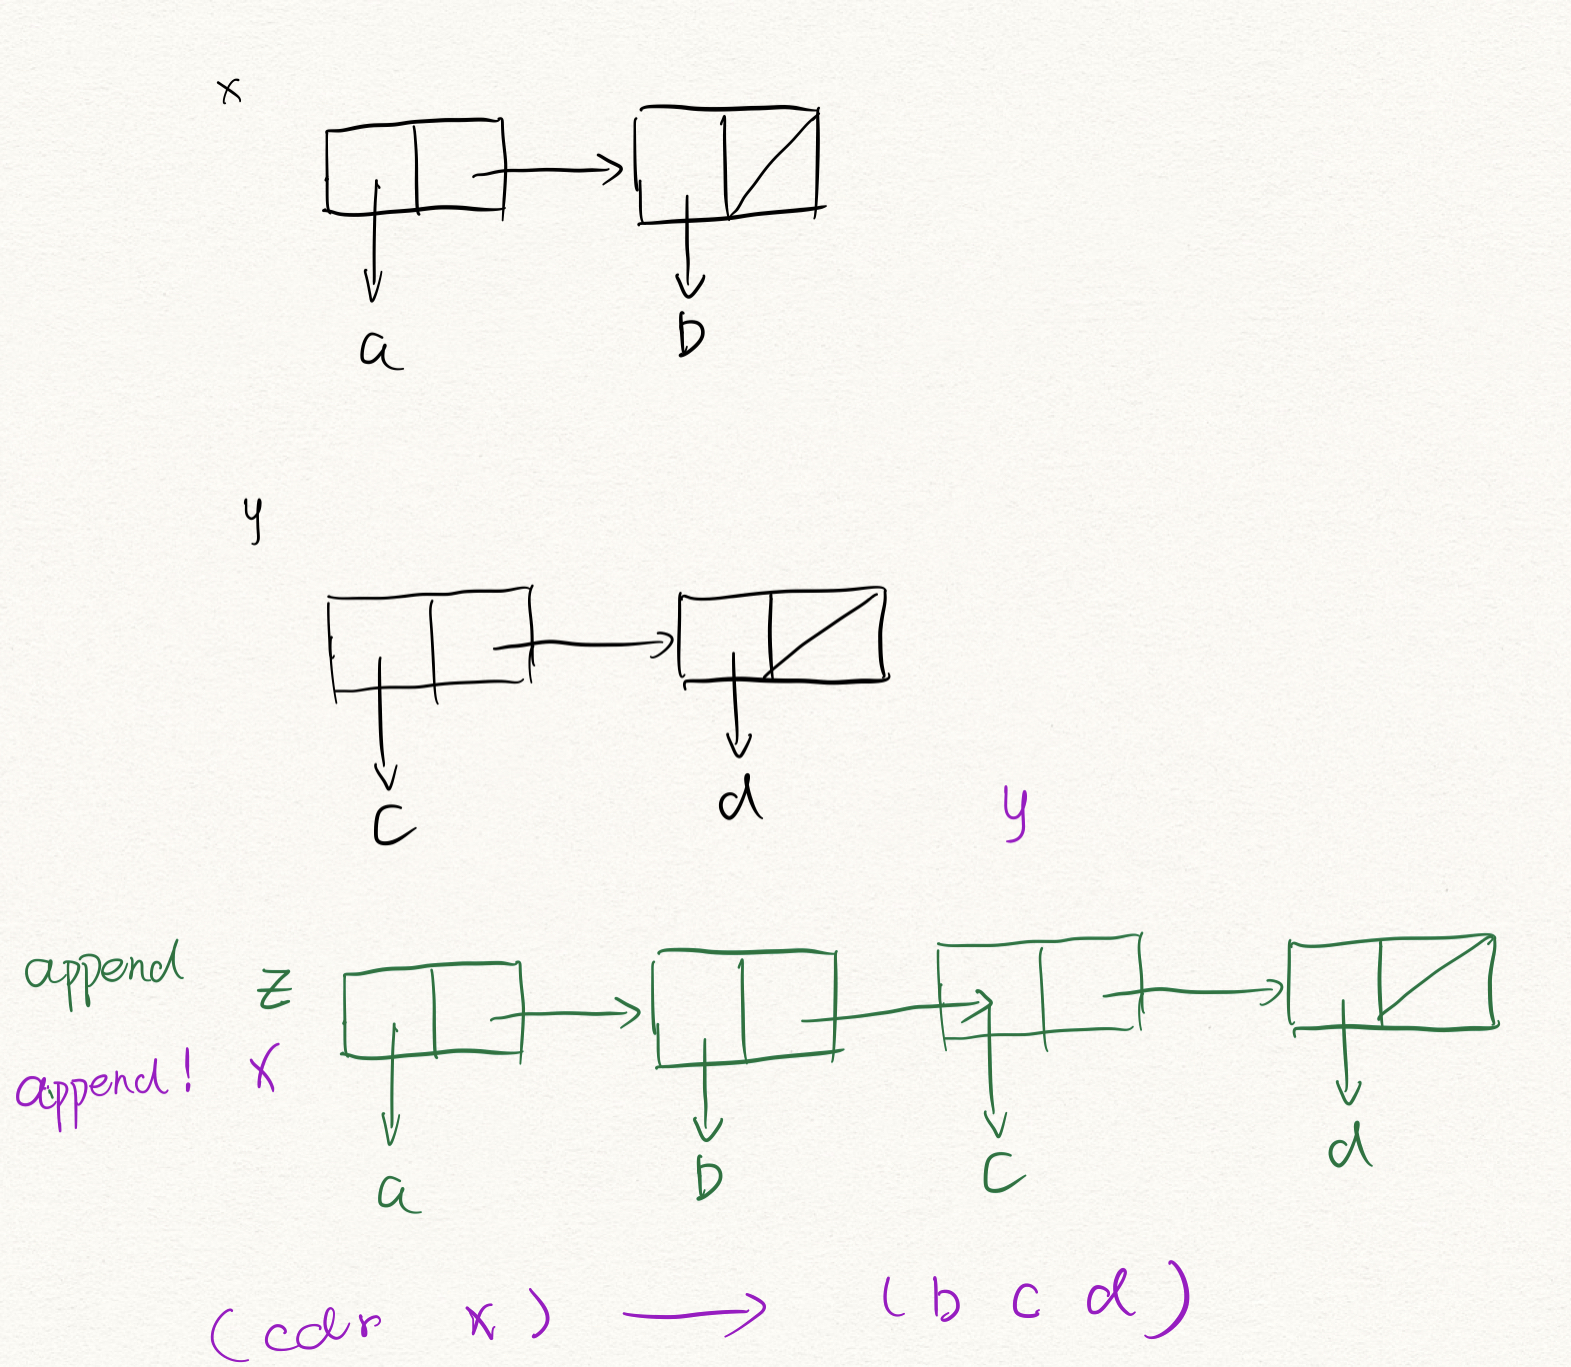 x
a b
y
c d
y
append z
append! x
a b c d
(cdr x) → (b c d)